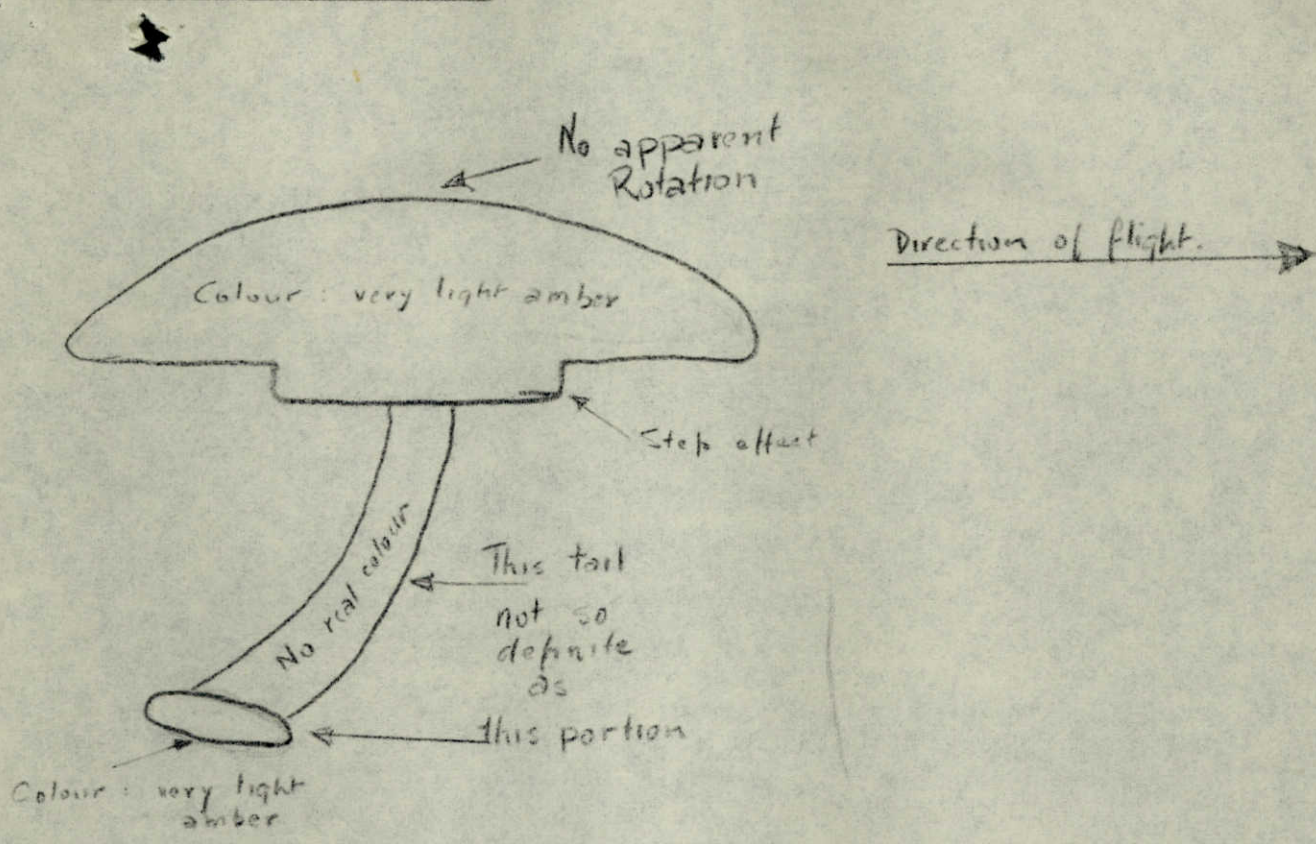 No apparent
Rotation
Direction of flight.
Colour : very light amber
Step effect
No real colour
This tail
not so
definite
as
this portion
Colour : very light
amber